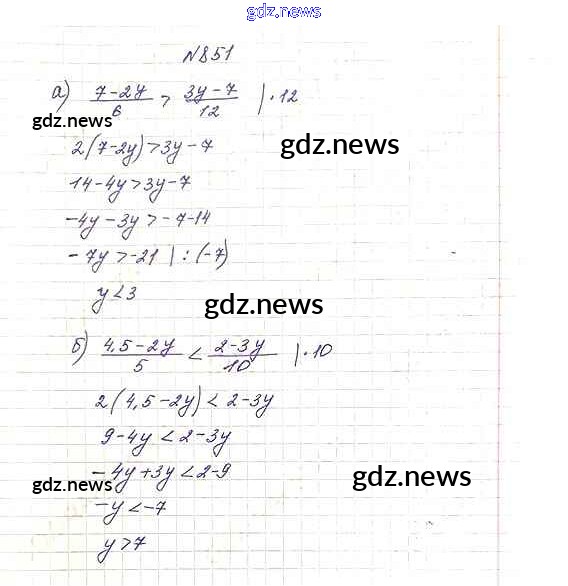 gdz.news
№851
а) 7-2y/6 > 3y-7/12 | ·12
gdz.news
2(7-2y)>3y-7
gdz.news
14-4y>3y-7
-4y-3y>-7-14
-7y>-21 | :(-7)
y<3
gdz.news
б) 4,5-2y/5 < 2-3y/10 | ·10
2(4,5-2y)<2-3y
9-4y<2-3y
-4y+3y<2-9
gdz.news
gdz.news
-y<-7
y>7